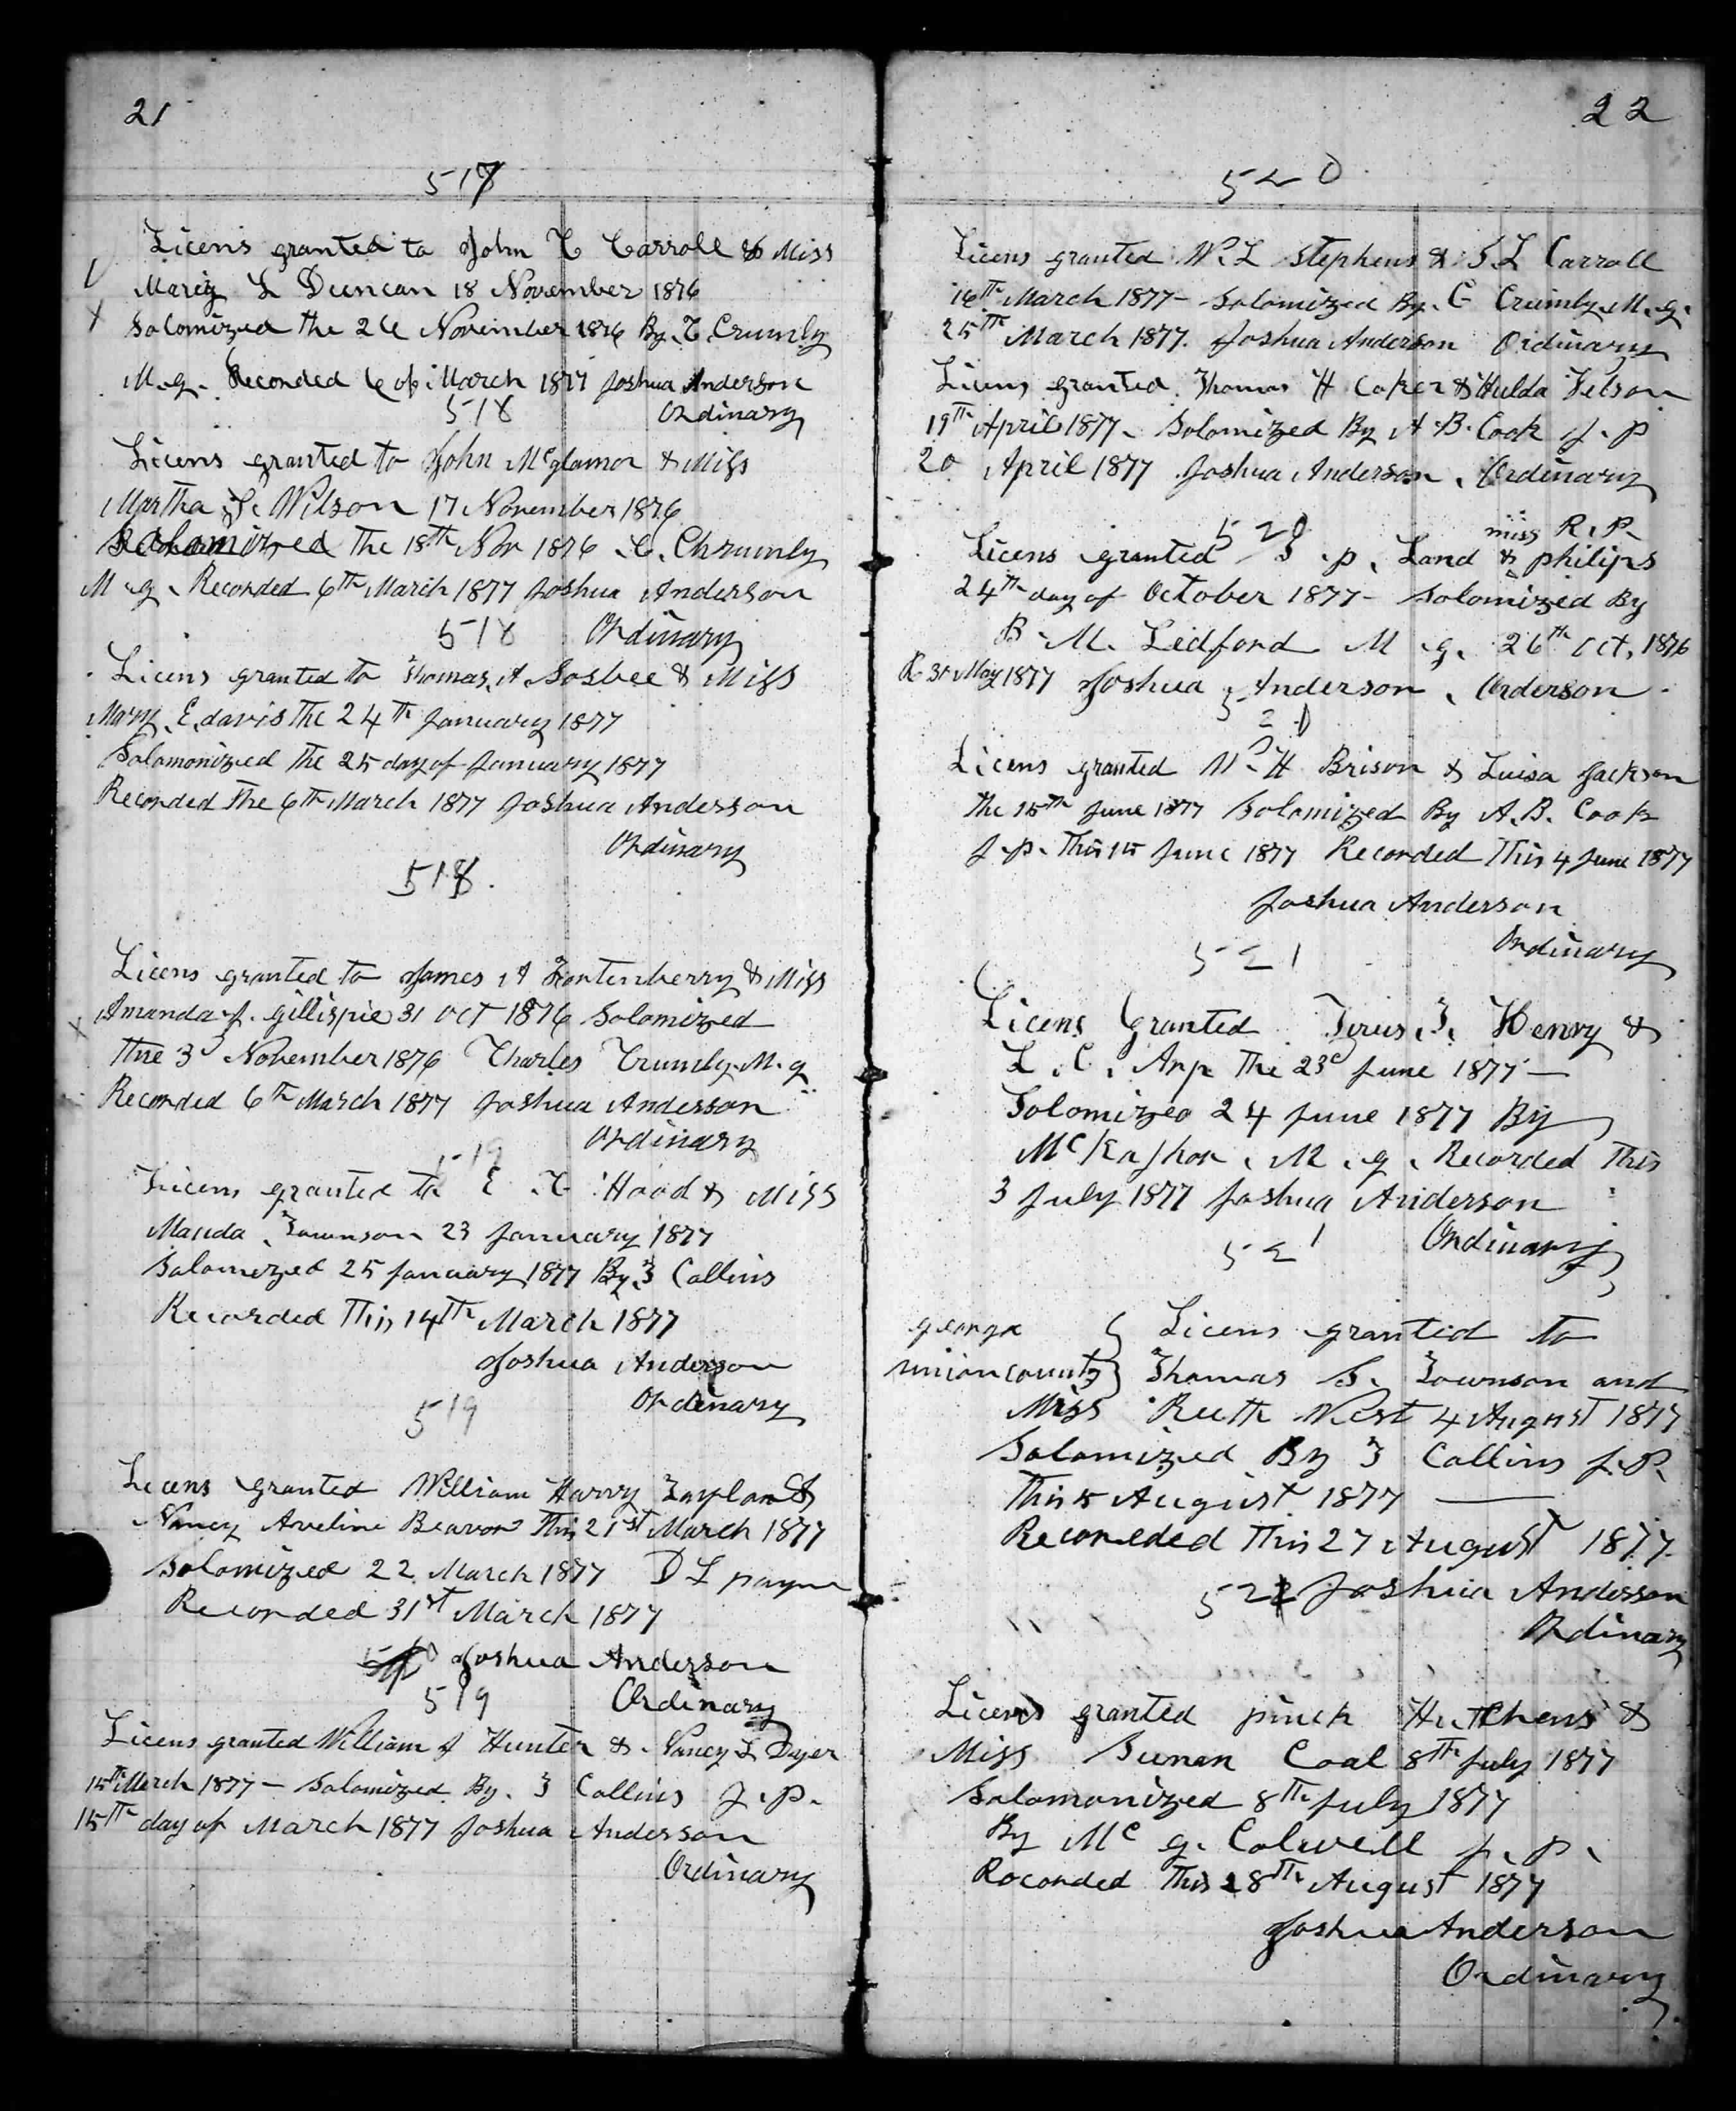 21
517
Licens granted to John C Carroll & Miss
L Duncan 18 November 1876
Solomized the 26 November 1876 By C. Crumly
M.g. Reconded 6 of March 1877 Joshua Anderson
518 Ordinary
Licens granted to John Mcglamor & Miss
Martha J. Wilson 17 November 1876
Solomized the 18th Nov 1876 C. Chrumly
M g. Reconded 6th March 1877 Joshua Anderson
518 Ordinary
Licens granted to Thomas A Sosbee & Miss
Mary E. davis the 24th January 1877
Solomonized the 25 day of January 1877
Reconded the 6th March 1877 Joshua Anderson
Ordinary
518.
Licens granted to James A & Miss
Amanda J. gillispie 31 oct 1876 Solomized
the 3d November 1876 Charles Crumly M.g
Reconded 6th March 1877 Joshua Anderson
Ordinary
519
Licens granted to E. C. Hood & Miss
Manda Townson 23 January 1877
Solomized 25 January 1877 By T Collins
Recorded This 14th March 1877
Joshua Anderson
519 Ordinary
Licens granted William Harvy Taylor &
Nancy Aveline This 21st March 1877
Solomized 22 March 1877 D L payne
Reconded 31st March 1877
Joshua Anderson
519 Ordinary
Licens granted William J Hunter & Nancy L Dyer
15th March 1877 - Solomized By. T Collins J.P.
15th day of March 1877 Joshua Anderson
Ordinary
22
520
Licens granted W. L Stephens & S L Carroll
16th March 1877 - Solomized By. C Crumly M.g.
25th March 1877. Joshua Anderson Ordinary
Licens granted Thomas H Coker & Hulda
19th April 1877 - Solomized By A.B. Cook J.P
20 April 1877 Joshua Anderson, Ordinary
520 miss R. P.
Licens granted p. Land & philips
24th day of October 1877 - Solomized By
B. M. Ledford M.g. 26th Oct, 1876
R 31 May 1877 Joshua Anderson, Orderson
521
Licens granted W. H Brison & Luisa Jackson
the 15th June 1877 Solomized By A.B. Cook
J.p. This 15 June 1877 Recorded This 4 June 1877
Joshua Anderson
521 Ordinary
Licens Granted T. Henry &
L. C. Arp The 23d June 1877 -
Solomized 24 June 1877 By
M.g. Recorded This
3 July 1877 Joshua Anderson
521 Ordinary
george } Licens granted to
union county } Thomas S. Townson and
Miss Ruth West 4 August 1877
Solomized By T Collins J.P.
This 5 August 1877
Reconeded This 27 August 1877.
522 Joshua Anderson
Ordinary
Licens granted pinck Hutchens &
Miss Coal 8th July 1877
Solomonized 8th July 1877
By Mc g. Colwell J.P.
Roconded This 28th August 1877
Joshua Anderson
Ordinary